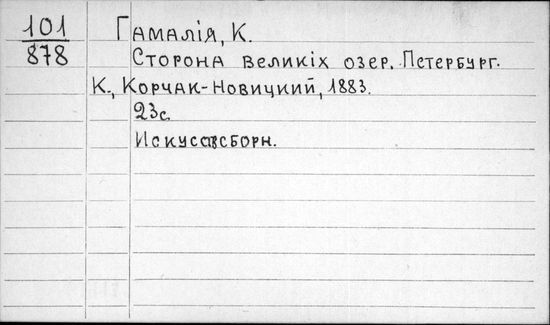 101
878
Гамалія, К.
Сторона великіх озер. Петербург.
К., Корчак-Новицкий, 1883.
23с.